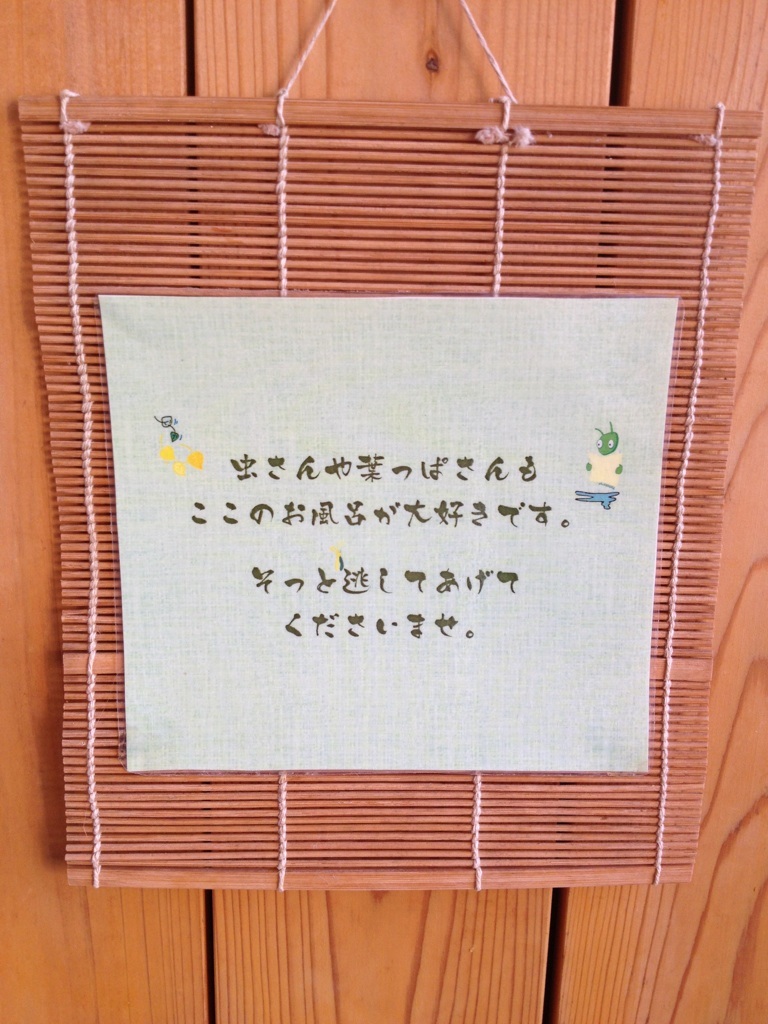 虫さんや葉っぱさんも
ここのお風呂が大好きです。
そっと逃してあげて
くださいませ。